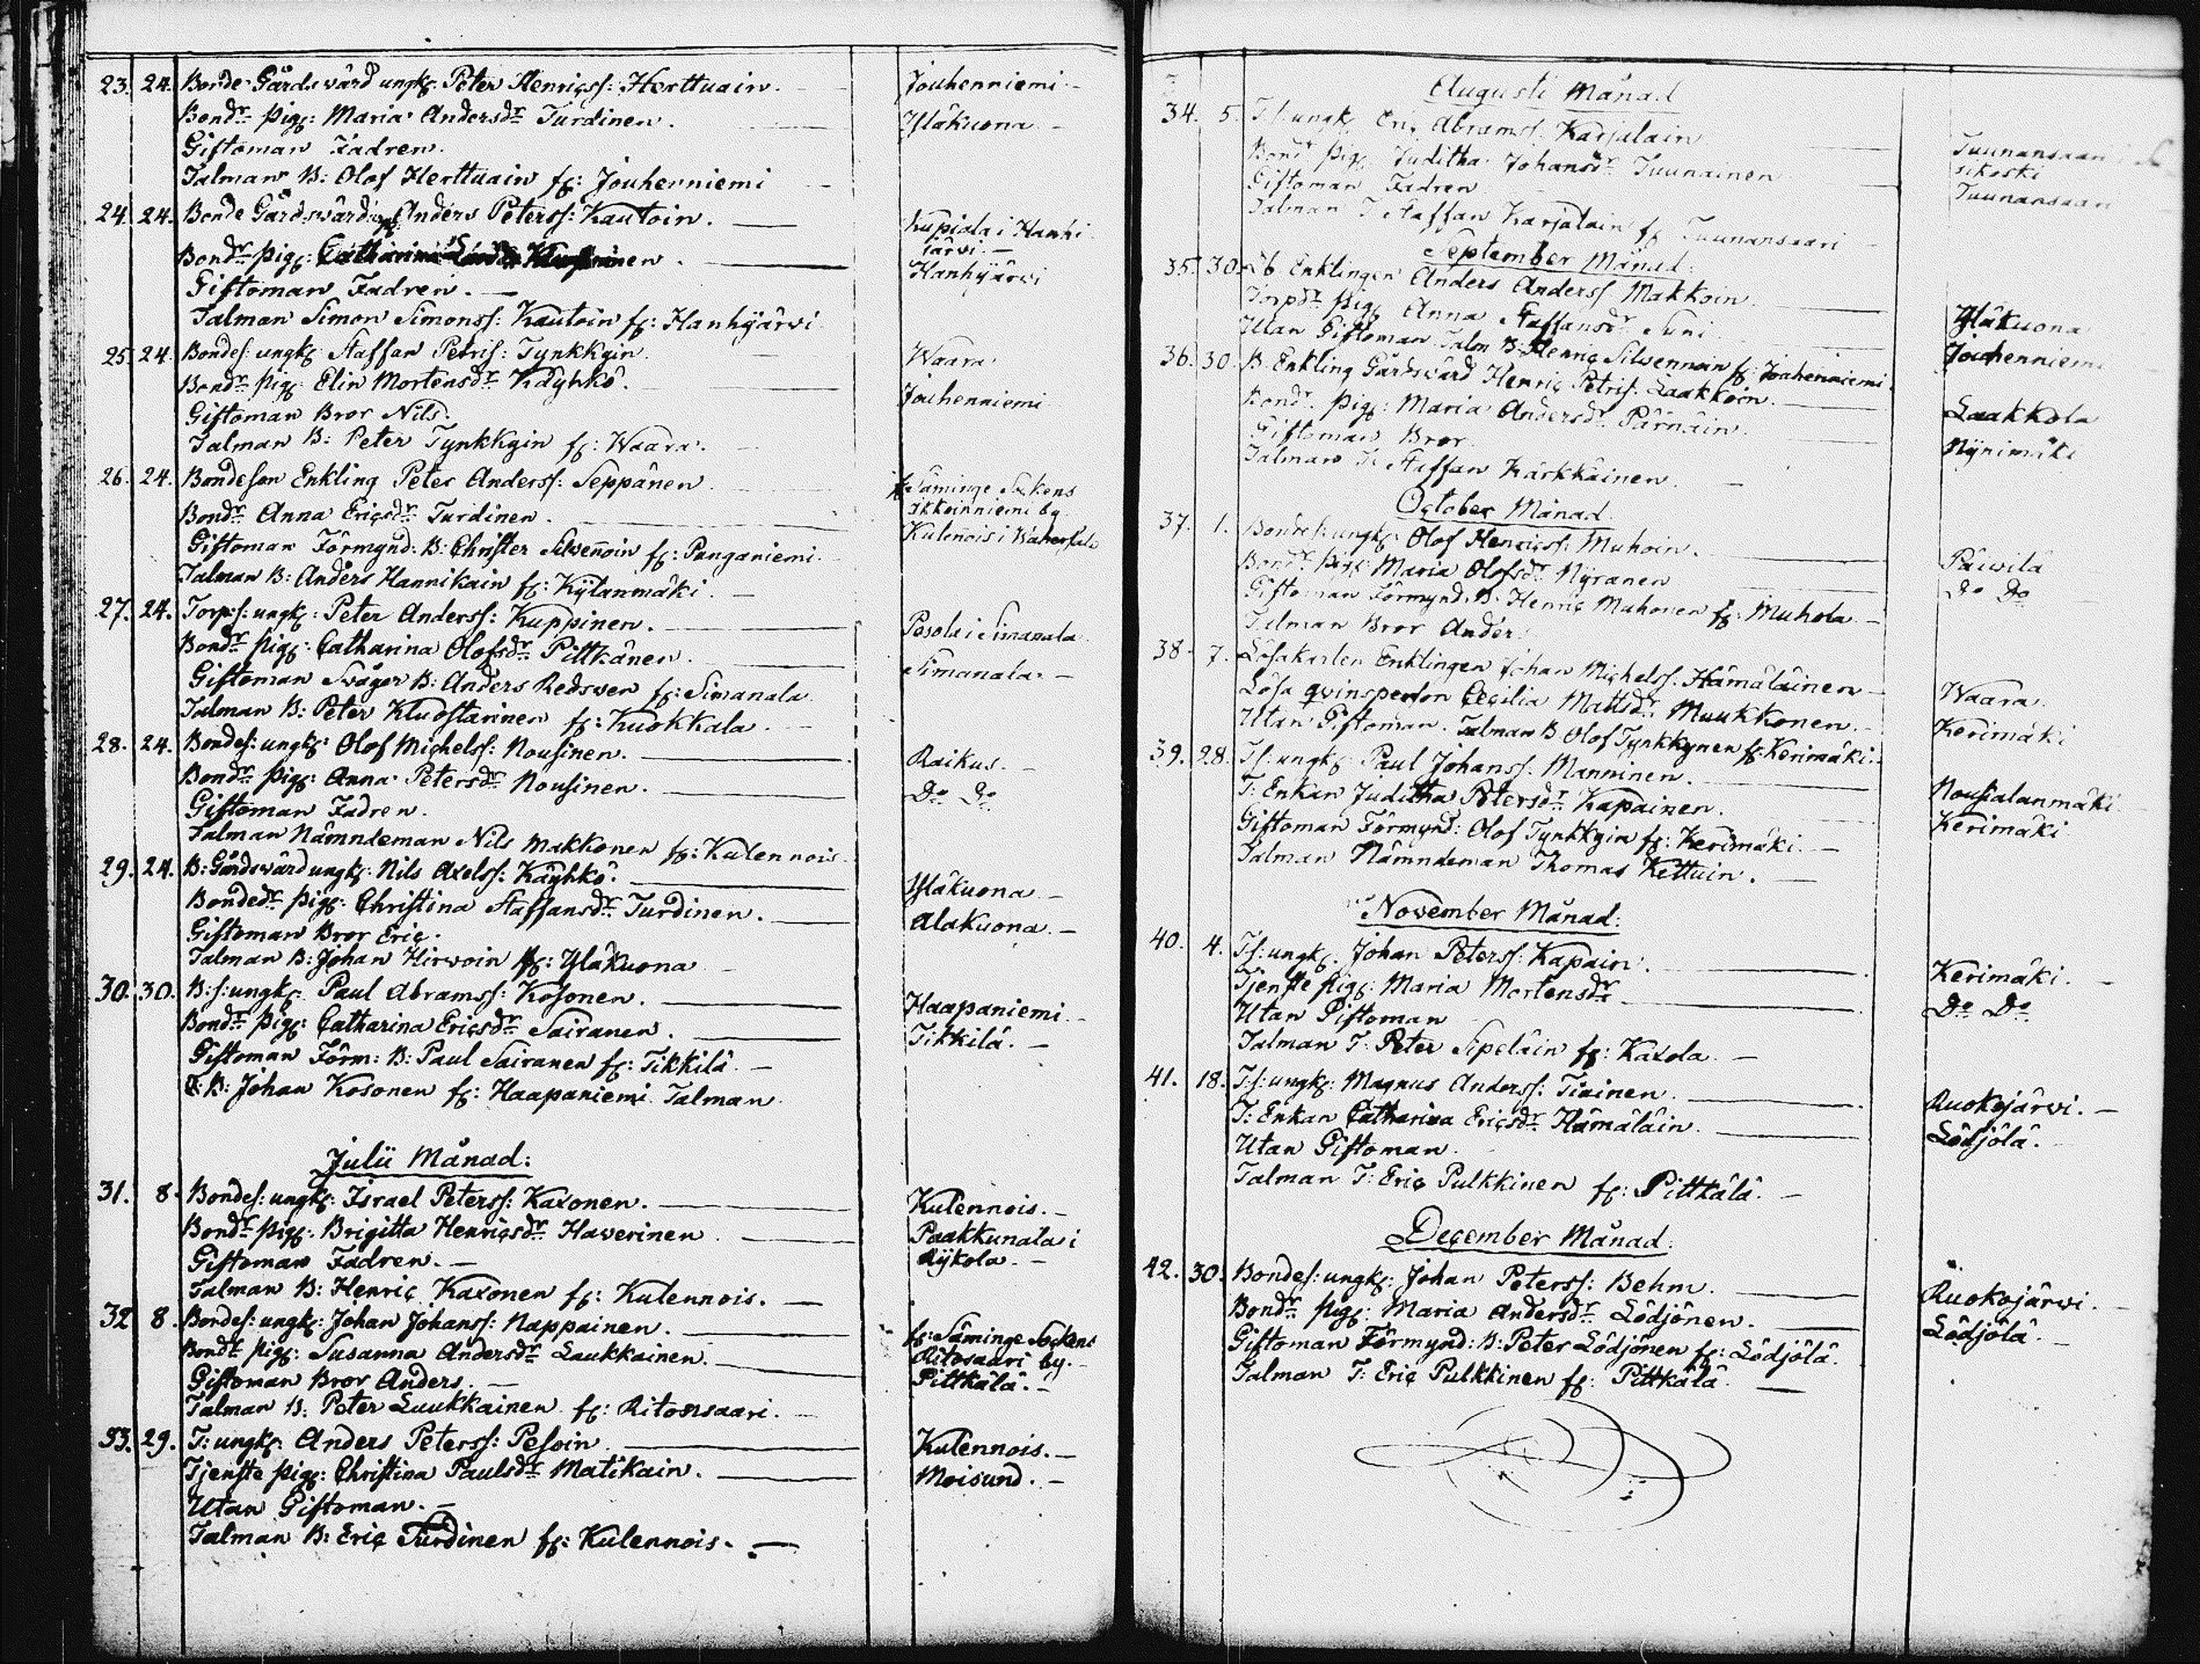 23. 24. Bonde Gårdswård ungk: Peter Henricss: Herttuain. Jouhenniemi
Bondr pig: Maria Andersdr Turdinen. Yläkuona
Giftoman Fadren.
Talman B: Olof Herttuain fr: Jouhenniemi
24. 24. Bonde Gårdswård Anders Peterss: Kautoin. Kupiala i Hanhi
järvi
Bondr pig: Hanhijärvi
Giftoman Fadren.
Talman Simon Simonss: Kautoin fr: Hanhijärvi
25. 24. Bondes: ungk: Staffan Petris: Tynkkyin. Waara
Bondr pig: Elin Mortensdr Käyhkö. Jouhenniemi
Giftoman Bror Nils.
Talman B: Peter Tynkkyin fr: Waara.
26. 24. Bondeson Enkling Peter Anderss: Seppänen fr Säminge Sockens
Ikkoinniemi by.
Bondr Anna Ericsdr Turdinen. Kulennois i
Giftoman Förmynd: B: Christer Silwenoin fr: Panganiemi
Talman B: Anders Hannikain fr: Kylanmäki.
27. 24. Torp:s: ungk: Peter Anderss: Kuppinen. Pesola i Simanala
Bondr pig: Catharina Olofsdr Pittkänen. Simanala
Giftoman Svåger B: Anders Redswen fr: Simanala
Talman B: Peter Kluostarinen fr: Kuokkala
28. 24. Bondes: ungk: Olof Michelss: Nousinen. Raikus.
Bondr pig: Anna Petersdr Nousinen. Do Do
Giftoman Fadren.
Talman Nämndeman Nils Makkonen fr: Kulennois
29. 24. B: Gårdswård ungk: Nils Axelss: Käyhkö. Yläkuona
Bondedr pig: Christina Staffansdr Turdinen. Alakuona
Giftoman Bror Eric.
Talman B: Johan Hirwoin fr: Yläkuona
30. 30. B: s: ungk: Paul Abramss: Kosonen. Haapaniemi
Bondr pig: Catharina Ericsdr Sairanen. Tikkilä.
Giftoman Förm: B: Paul Sairanen fr: Tikkilä.
B: Johan Kosonen fr: Haapaniemi Talman
Julii Månad:
31. 8. Bondes: ungk: Israel Peterss: Kaxonen. Kulennois.
Bondr pig: Brigitta Henricsdr Hawerinen Paakkunala i
Giftoman Fadren. Rykola.
Talman B: Henric Kaxonen fr: Kulennois.
32 8. Bondes: ungk: Johan Johanss: Nappainen. fr: Säminge Sockens
Bondr pig: Susanna Andersdr Laukkainen. Ritosaari by.
Giftoman Bror Anders. Pittkälä.
Talman B: Peter Luukkainen fr: Ritosaari.
33. 29. T: ungk: Anders Peterss: Pesoin Kulennois.
Tjenste pig: Christina Paulsdr Matikain. Moisund.
Utan Giftoman.
Talman B: Eric Turdinen fr: Kulennois.
Augusti Månad
34. 5. T: s: ungk: Eric Abramss: Karjalain Tuunansaari
Bondr pig Juditha Johansdr Tuunainen Tuunansaari
Giftoman Fadren
Talman T Staffan Karjalain fr Tuunansaari
September Månad:
35. 30. Enklingen Anders Anderss Makkoin. Yläkuona
Torpdr pig Anna Staffansdr Suni Jouhenniemi
Utan Giftoman Talm B: Henric Silwennoin fr: Jouhenniemi
36. 30. B. Enkling Gårdswärd Henric Petris: Laakkoin. Laakkola
Bondr. pig: Maria Andersdr Pärnäin Nyrimäki
Giftoman Bror
Talman T: Staffan Karkkäinen
October Månad
37. 1. Bondes: ungk: Olof Henricss: Muhoin. Päiwilä
Bondr pig Maria Olofsdr Nyranen Do Do
Giftoman Förmynd. B. Henric Muhonen fr: Muhola
Talman Bror Anders
38. 7. Lösakarlen Enklingen Johan Michelss: Hämäläinen Waara.
Lösa qvinsperson Cecilia Mattsdr Muukkonen. Kerimäki
Utan Giftoman. Talman B Olof Tynkkynen fr Kerimäki.
39. 28. T s: ungk: Paul Johanss: Manninen. Nousialanmäki
T: Enkan Juditha Petersdr Kapainen. Kerimäki
Giftoman Förmynd: Olof Tynkkyin fr: Kerimäki.
Talman Nämndeman Thomas Kettuin.
November Månad:
40. 4. T s: ungk. Johan Peterss: Kapain. Kerimäki.
Tjenste pig: Maria Mortensdr Do Do
Utan Giftoman
Talman T: Peter Sipeläin fr: Kaxola
41. 18. T s: ungk: Magnus Anderss: Tiainen. Ruokojärvi.
T: Enkan Catharina Ericsdr Hämäläin. Lödjölä.
Utan Giftoman.
Talman T: Eric Pulkkinen fr: Pittkälä.
December Månad:
42. 30. Bondes: ungk: Johan Peterss: Behm. Ruokojärvi.
Bondr pig: Maria Andersdr Lödjönen. Lödjölä.
Giftoman Förmynd: B: Peter Lödjönen fr: Lödjölä.
Talman T: Eric Pulkkinen fr: Pittkälä